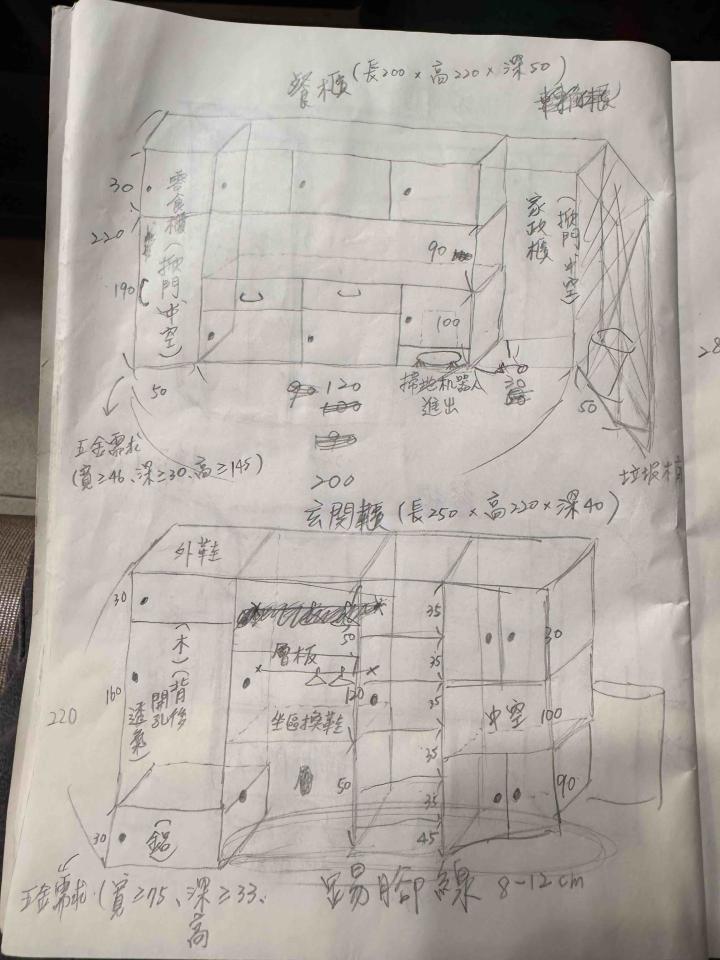 餐櫃(長200×高220×深50)
30
零食櫃(掀門,中空)
220
190
90
家政櫃
(掀門,中空)
100
50
120
掃地机器人
進出
30
50
五金需求
(寬≥46、深≥30、高≥145)
200
垃圾桶
28
玄關櫃(長250×高220×深40)
外鞋
30
(木)(背後
開孔
透氣)
160
220
50
層板
120
坐區換鞋
50
35
35
35
35
35
45
30
中空
100
90
30
(鋁)
五金需求(寬≥75、深≥33、
高
踢腳線 8-12cm